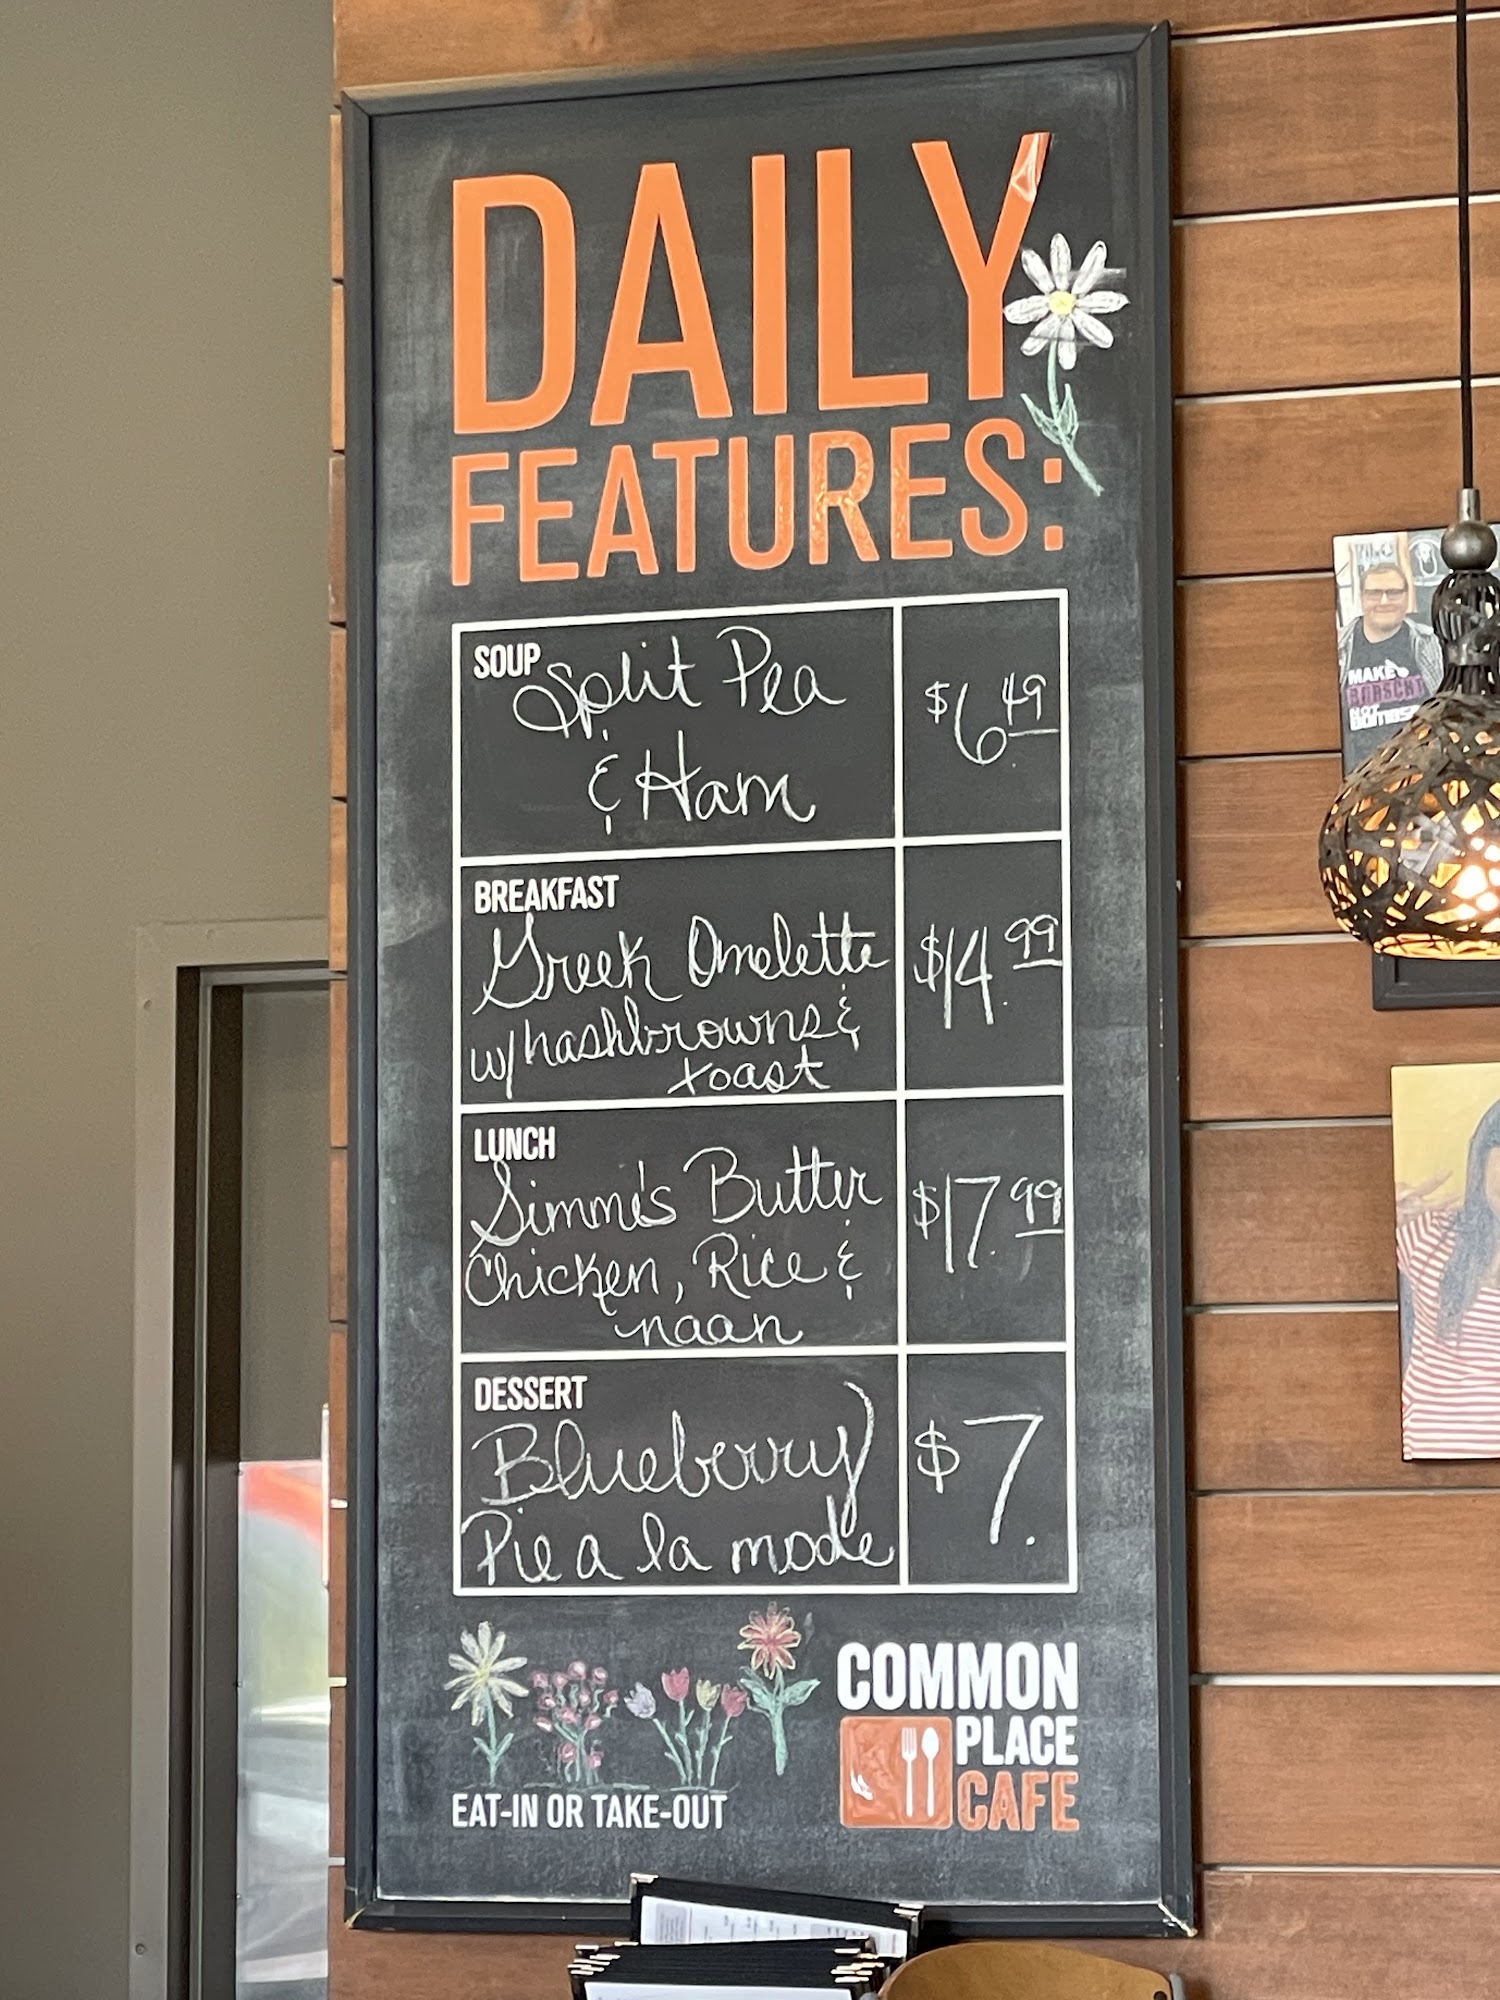 DAILY
FEATURES:
SOUP
Split Pea
& Ham
$6.49
BREAKFAST
Greek Omelette
w/ hashbrowns &
toast
$14.99
LUNCH
Simme's Butter
Chicken, Rice &
naan
$17.99
DESSERT
Blueberry
Pie a la mode
$7.
EAT-IN OR TAKE-OUT
COMMON
PLACE
CAFE
MAKE
BORSCHT
NOT